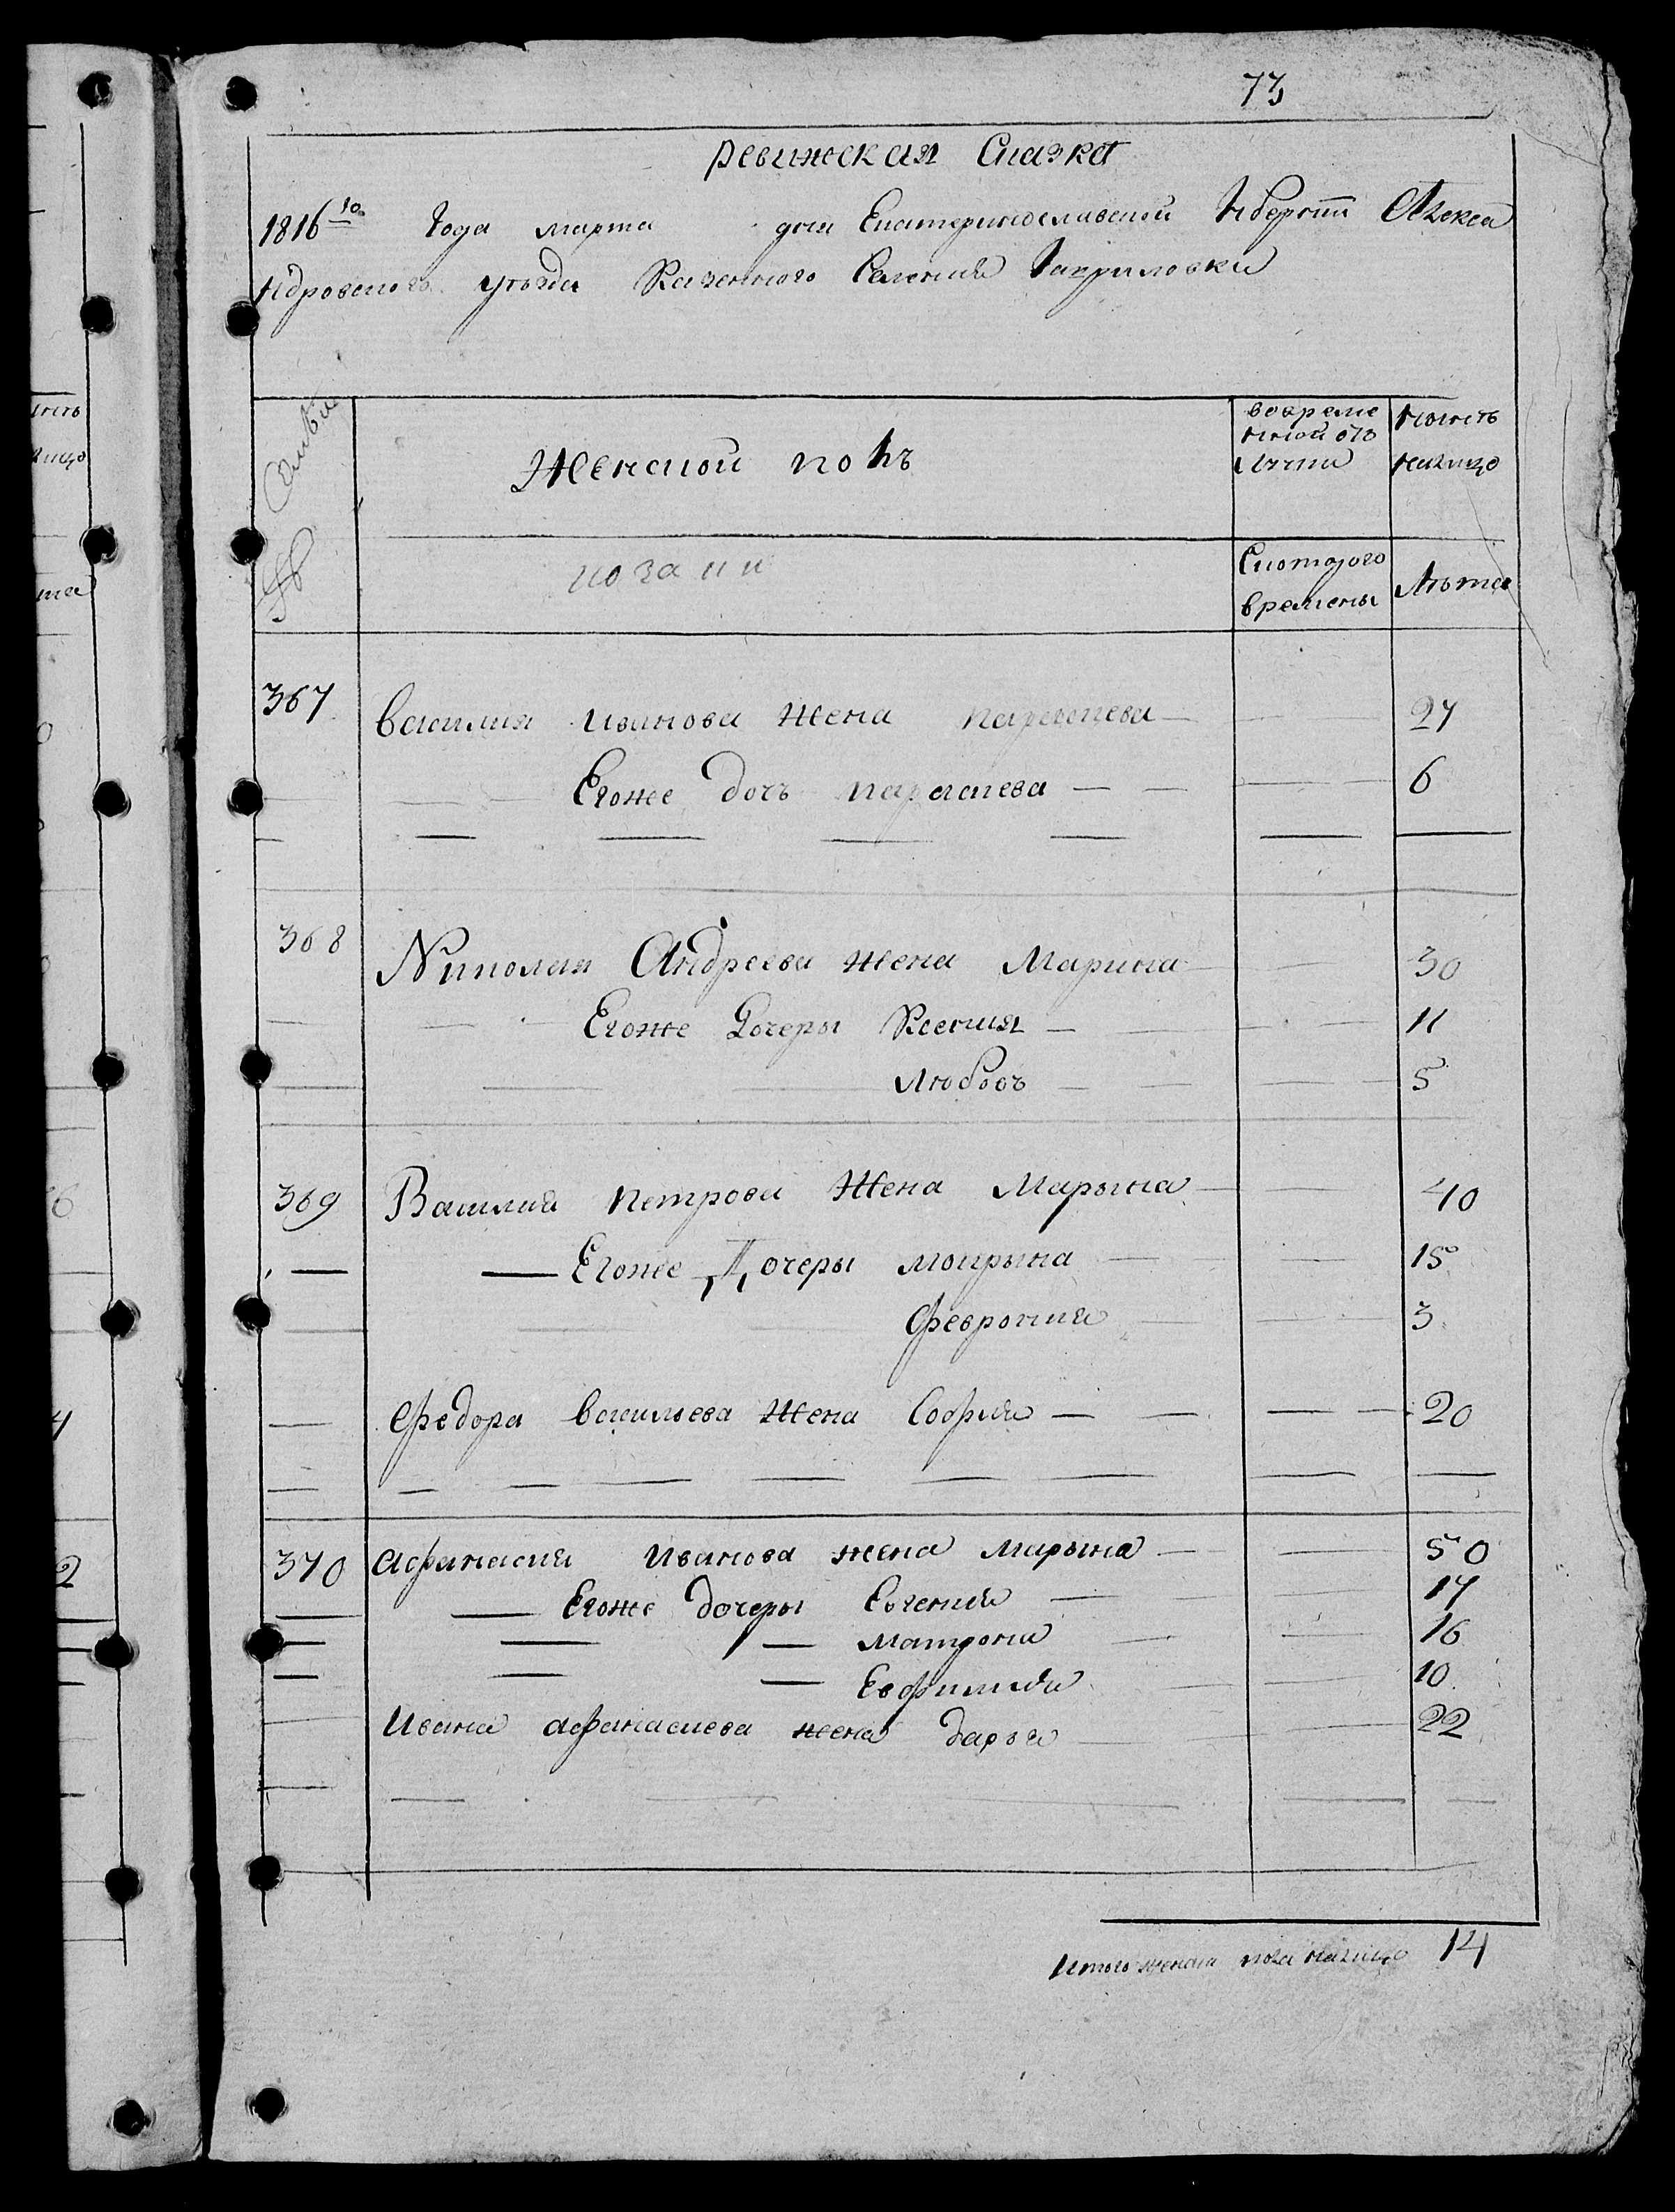 73
Ревижская Сказка
1816го Года марта дня Екатеринославской Губернїи Алекса
ндровского уезда Казенного Селения Гавриловки
№ Семьи
Женской полъ
во време
нной отъ
лучки
Нынѣ
налицо
Скоторого
времены
Лѣта
367 Василия Иванова Жена Параскева 27
Егоже дочъ парасиева 6
368 Николая Андреева жена Марина 30
Егоже Дочеры Ксения 11
Любовъ 5
369 Василия Петрова Жена Марына 40
Егоже Дочеры 15
Феврония 3
Федора васильева Жена София 20
370 афанасия Иванова жена Марына 50
Егоже дочеры Евгения 17
Матрона 16
Евфимия 10
Ивана афанасиева жена дарья 22
Итого женска пола налицо 14